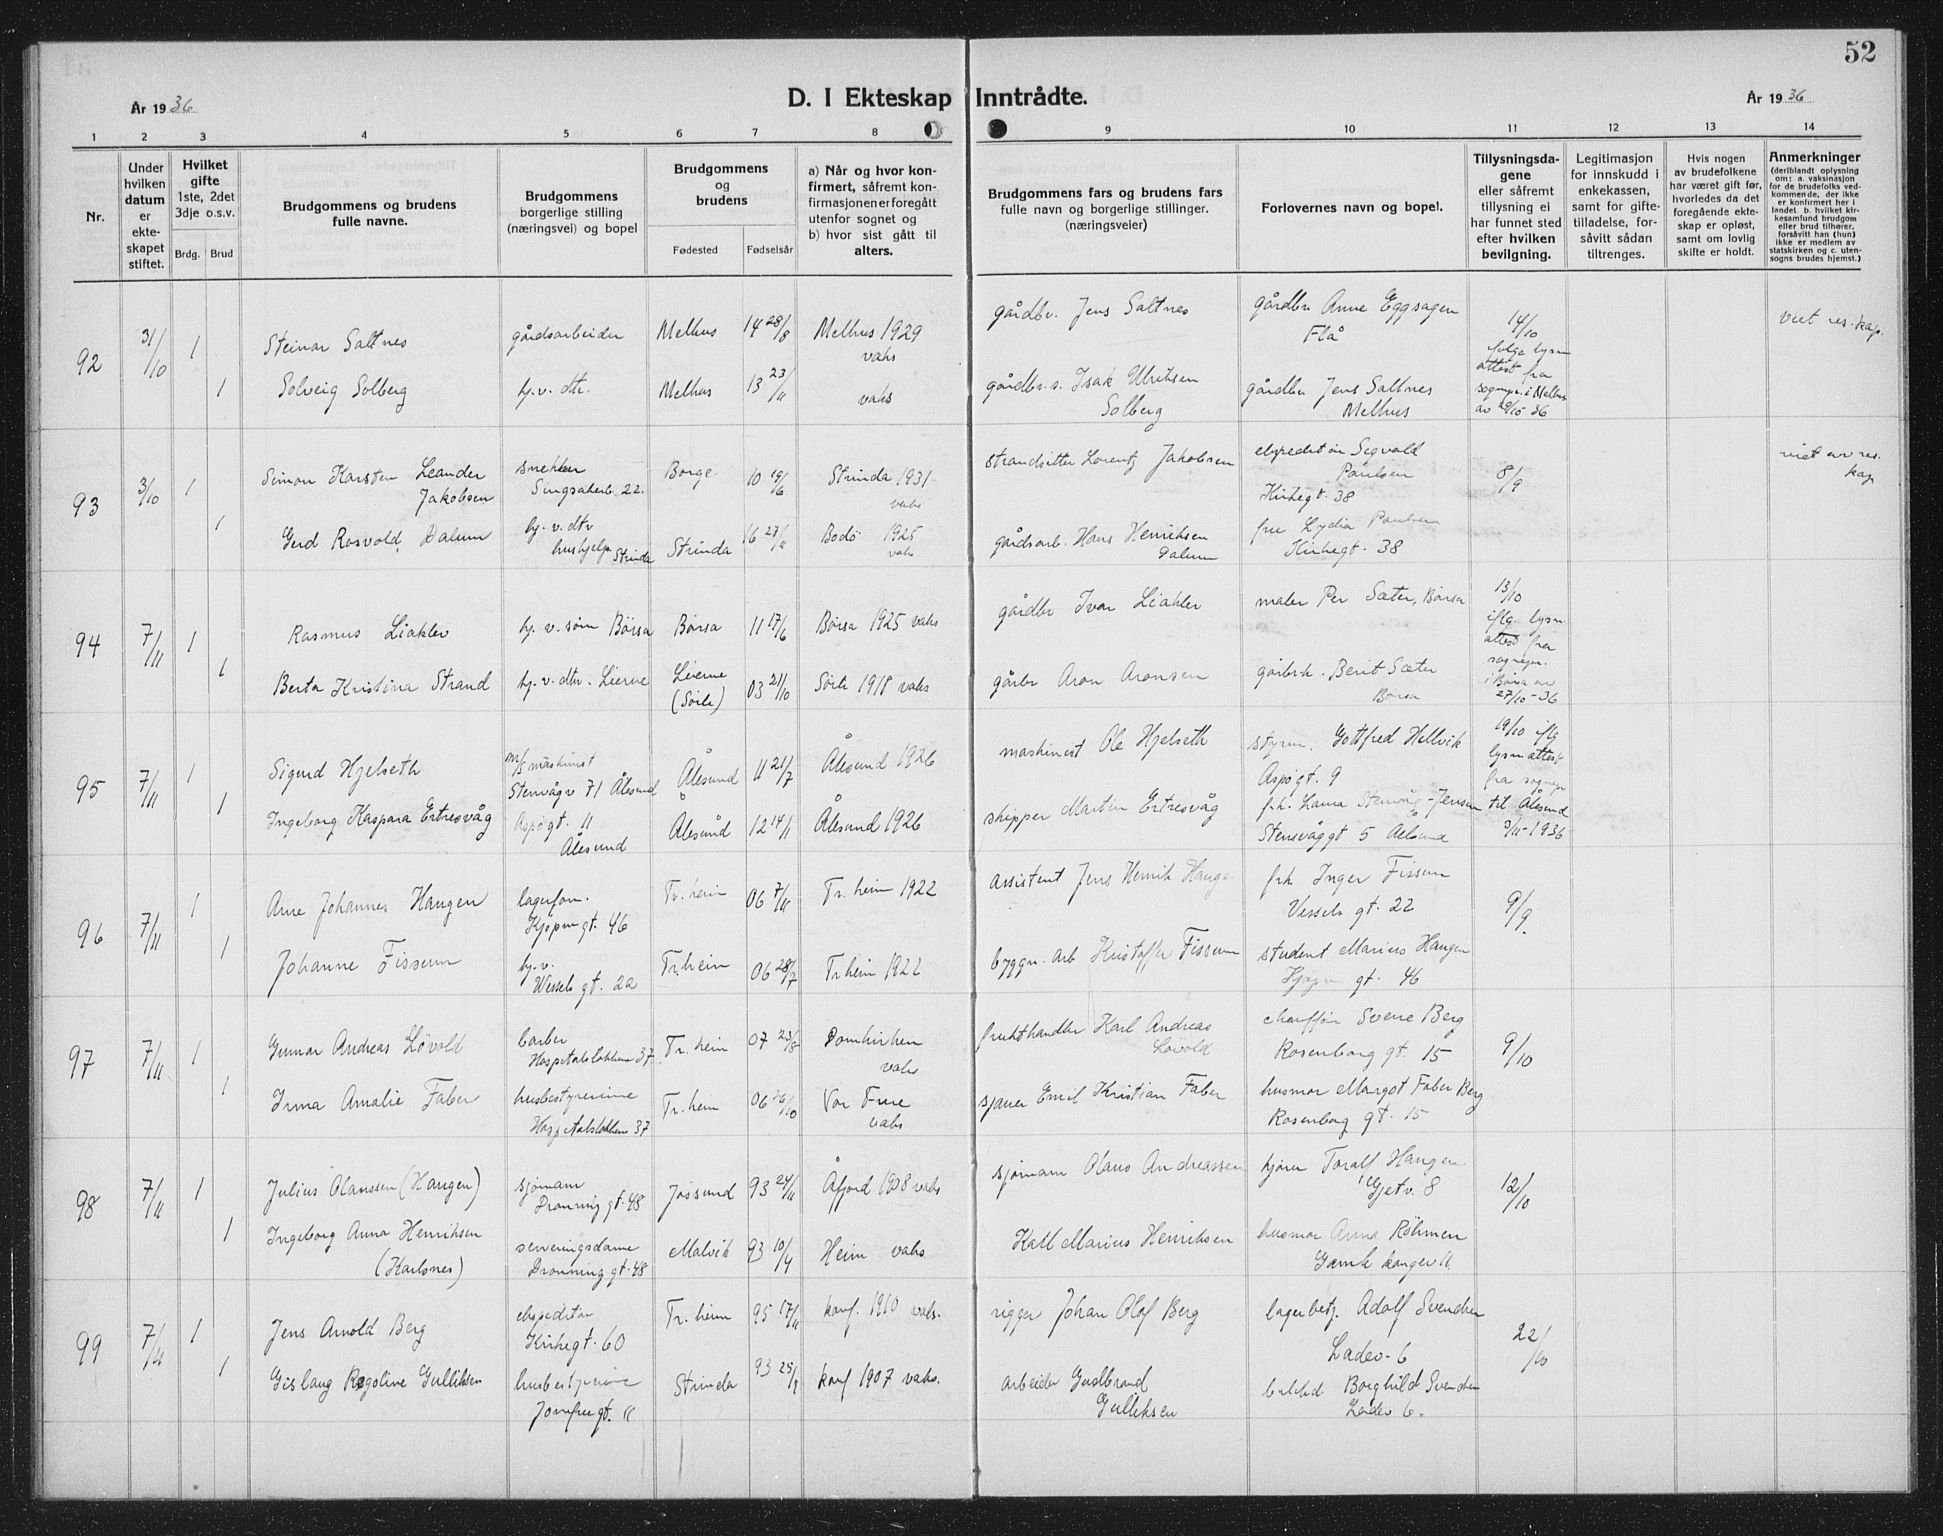 52
År 1936
D. I Ekteskap Inntrådte.
År 1936
1 2 3 4 5 6 7 8 9 10 11 12 13 14
Nr.
Under hvilken datum er ekte-skapet stiftet.
Hvilket gifte 1ste, 2det 3dje o.s.v.
Brdg. Brud
Brudgommens og brudens fulle navne.
Brudgommens borgerlige stilling (næringsvei) og bopel
Brudgommens og brudens
Fødested Fødselsår
a) Når og hvor kon-firmert, såfremt kon-firmasjonen er foregått utenfor sognet og b) hvor sist gått til alters.
Brudgommens fars og brudens fars fulle navn og borgerlige stillinger. (næringsveier)
Forlovernes navn og bopel.
Tillysningsda-gene eller såfremt tillysning ei har funnet sted efter hvilken bevilgning.
Legitimasjon for innskudd i enkekassen, samt for gifte-tilladelse, for-såvitt sådan tiltrenges.
Hvis nogen av brudefolkene har været gift før, hvorledes da det foregående ekte-skap er opløst, samt om lovlig skifte er holdt.
Anmerkninger (deriblandt oplysning om: a. vaksinasjon for de brudefolks ved-kommende, der ikke er konfirmert her i landet. b. hvilket kir-kesamfund brudgom eller brud tilhører, forsåvitt han (hun) ikke er medlem av statskirken og c. uten-sogns brudes hjemst.)
92 31/10 1 Steinar Saltnes gårdsarbeider Melhus 14 28/8 Melhus 1929 vaks gårdbr. Jens Saltnes gårdbr Anne Eggsagen Flå 14/10 viet res. kap.
1 Solveig Solberg hj. v. dtr. Melhus 13 23/11 vaks gårdbr. s. Isak Ulriksen Solberg gårdbr Jens Saltnes Melhus ifølge lysn attest fra sognepr. i Melhus av 29/10 36
93 3/10 1 Simon Karsten Leander Jakobsen snekker Singsakerb. 22. Borge 10 19/6 Strinda 1931 vaks strandsitter Lorentz Jakobsen ekspeditør Sigvald Paulsen Kirkegt. 38 8/9 viet av res. kap
1 Gerd Rosvold Dalum hj. v. dtr hushjelp Strinda Strinda 16 27/11 Bodø 1925 vaks gårdsarb. Hans Henriksen Dalum fru Lydia Paulsen Kirkegt. 38
94 7/11 1 Rasmus Liaklev hj. v. sønn Børsa Børsa 11 17/6 Børsa 1925 vaks gårdbr Ivar Liaklev maler Per Sæter, Børsa 13/10 iflg. lysn. attest fra sognepr. i Børsa av 27/10-36
1 Berta Kristina Strand hj. v. dtr. Lierne Lierne (Sørli) 03 21/10 Sørli 1918 vaks gårbr Aron Aronsen gårbrk. Berit Sæter Børsa
95 7/11 1 Sigurd Hjelseth m/s maskinist Stenvågv 71 Ålesund Ålesund 11 21/7 Ålesund 1926 maskinist Ole Hjelseth styrm. Gottfred Hellvik Aspøgt. 9 19/10 iflg lysn attest fra sognepr til Ålesund 3/11-1936
1 Ingeborg Kaspara Ertresvåg Aspøgt. 11 Ålesund Ålesund 12 14/1 Ålesund 1926 skipper Martin Ertresvåg frk. Laura Stenvåg-Jensen Stensvåggt 5 Aalesund
96 7/11 1 Arne Johannes Haugen lagerfom. Kjøpmgt. 46 Tr. heim 06 7/11 Tr. heim 1922 assistent Jens Henrik Haugen frk Inger Fissum Vessels gt. 22 9/9.
1 Johanne Fissum hj. v. Wessels gt. 22 Tr.heim 06 28/7 Tr.heim 1922 byggn. arb Kristoffer Fissum student Marius Haugen Kjøpm gt. 46
97 7/11 1 Gunnar Andreas Løvold barber Hospitalsløkken 37. Tr. heim 07 23/8 Domkirken vaks frukthandler Karl Andreas Løvold chauffør Sverre Berg Rosenborg gt. 15 9/10
1 Irma Amalie Faber husbestyrerinne Hospitalsløkken 37 Tr. heim 06 26/10 Vor Frue vaks sjauer Emil Kristian Faber husmor Margot Faber Berg Rosenborg gt. 15
98 7/11 1 Julius Olaussen (Haugen) sjømann Dronning gt. 48 Jøssund 93 24/11 Åfjord 1908 vaks sjømann Olaus Andreassen kjører Toralf Haugen Gjetv. 8 12/10
1 Ingeborg Anna Henriksen (Karlsnes) serveringsdame Dronning gt. 48 Malvik 93 10/4 Heim vaks Karl Marius Henriksen husmor Anna Röhmen Gamle kongev 11.
99 7/11 1 Jens Arnold Berg ekspeditør Kirkegt. 60 Tr. heim 95 17/11 konf. 1910 vaks. rigger Johan Olaf Berg lagerbetj. Adolf Svendsen Ladev. 6 22/10
1 Gislaug Regoline Gulliksen husbestyrerinne Jomfrugt. 11 Strinda 93 25/9 konf 1907 vaks. arbeider Gudbrand Gulliksen Borghild Svendsen Ladev 6.